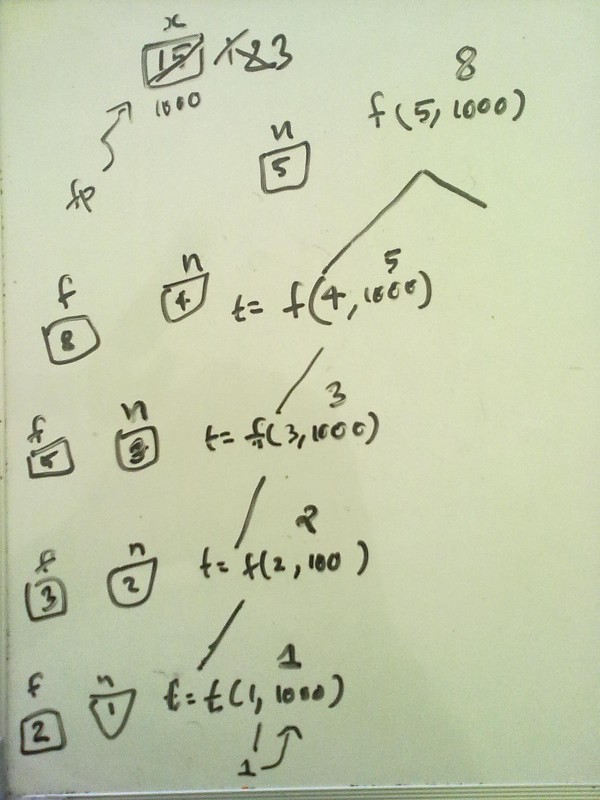 x
15 1 2 3
1000
8
f(5,1000)
fp
n
5
5
f n
8 4 t= f(4,1000)
3
f n
5 3 t= f(3,1000)
2
f n
3 2 t= f(2,100)
1
f n
2 1 t= f(1,1000)
1